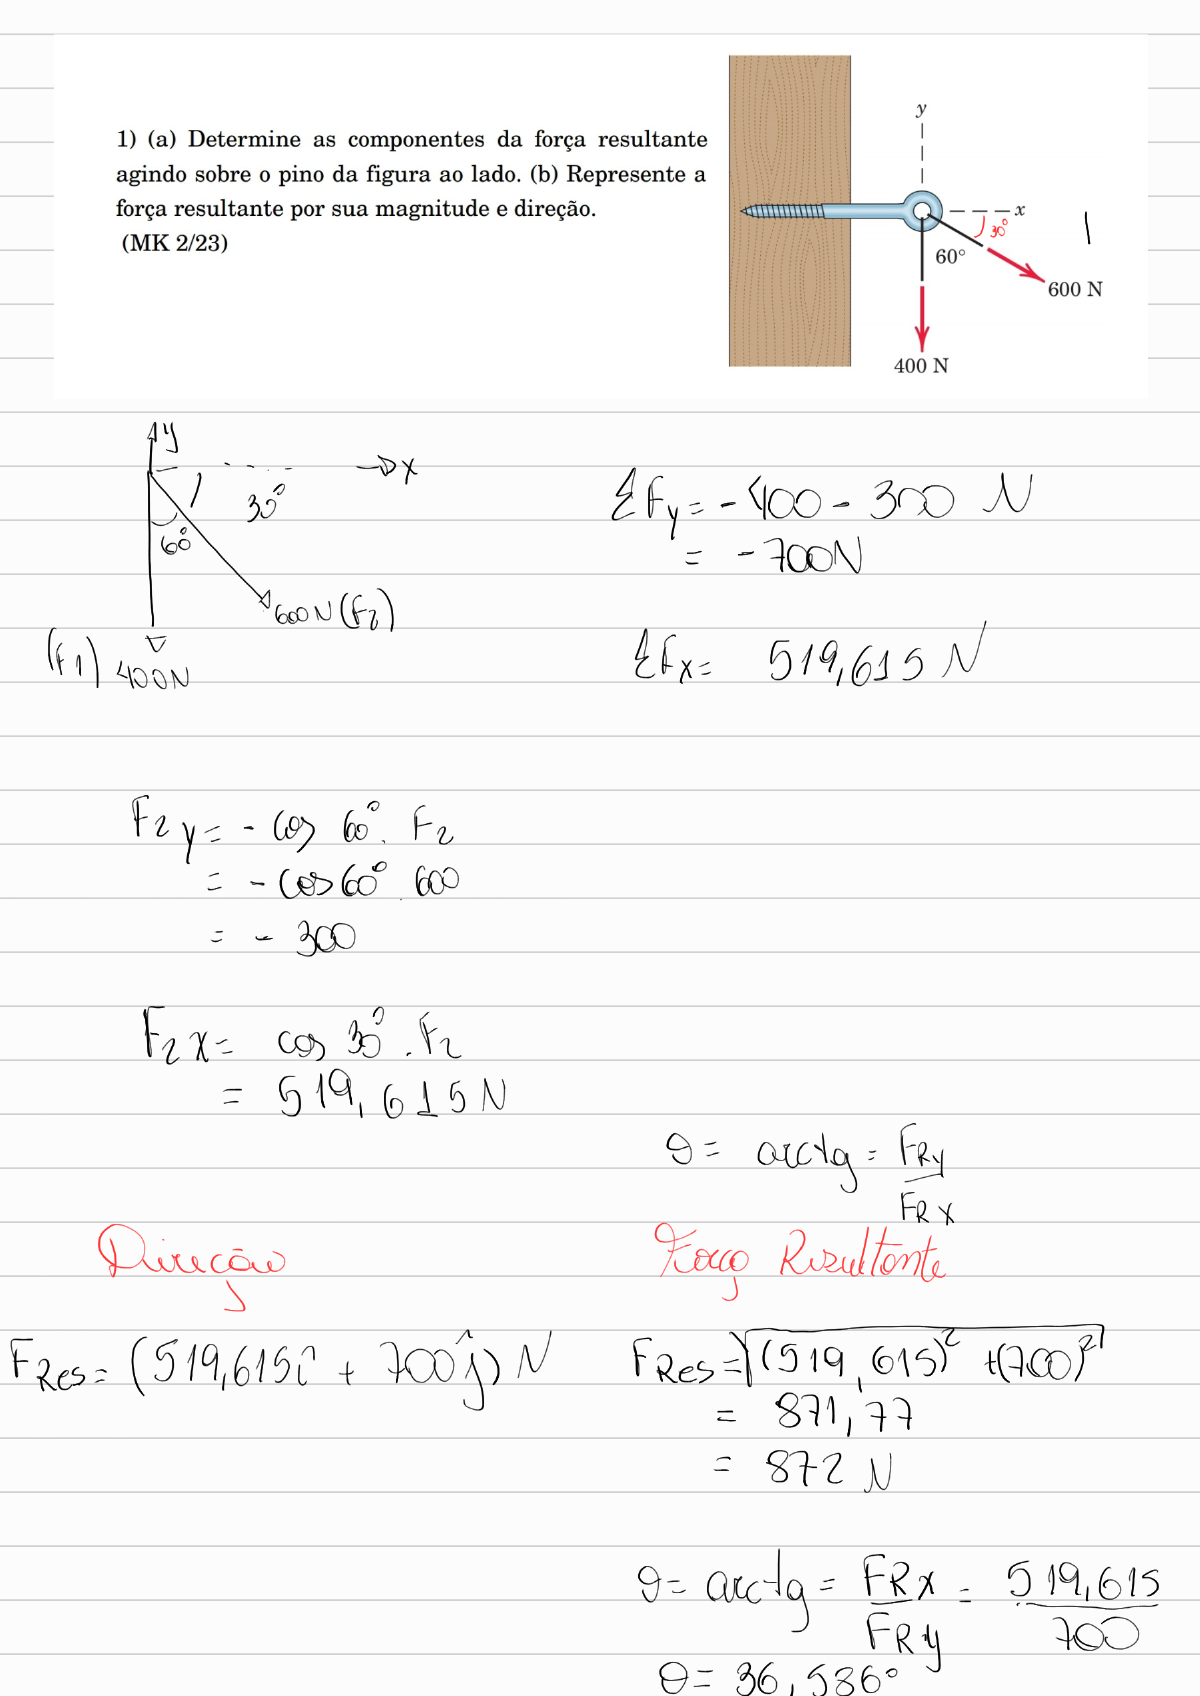 1) (a) Determine as componentes da força resultante
agindo sobre o pino da figura ao lado. (b) Represente a
força resultante por sua magnitude e direção.
(MK 2/23)
y
x
30°
60°
600 N
400 N
y
x
30°
60°
600N (F2)
(F1) 400N
ΣFy = -400 - 300 N
= -700N
ΣFx = 519,615 N
F2y = - cos 60°. F2
= - cos 60° . 600
= - 300
F2x = cos 30° . F2
= 519,615 N
θ = arctg = FRy / FRx
Direção
Força Resultante
FRes = (519,615î + 700ĵ) N
FRes = √(519,615)² + (700)²
= 871,77
= 872 N
θ = arctg = FRx / FRy = 519,615 / 700
θ = 36,586°